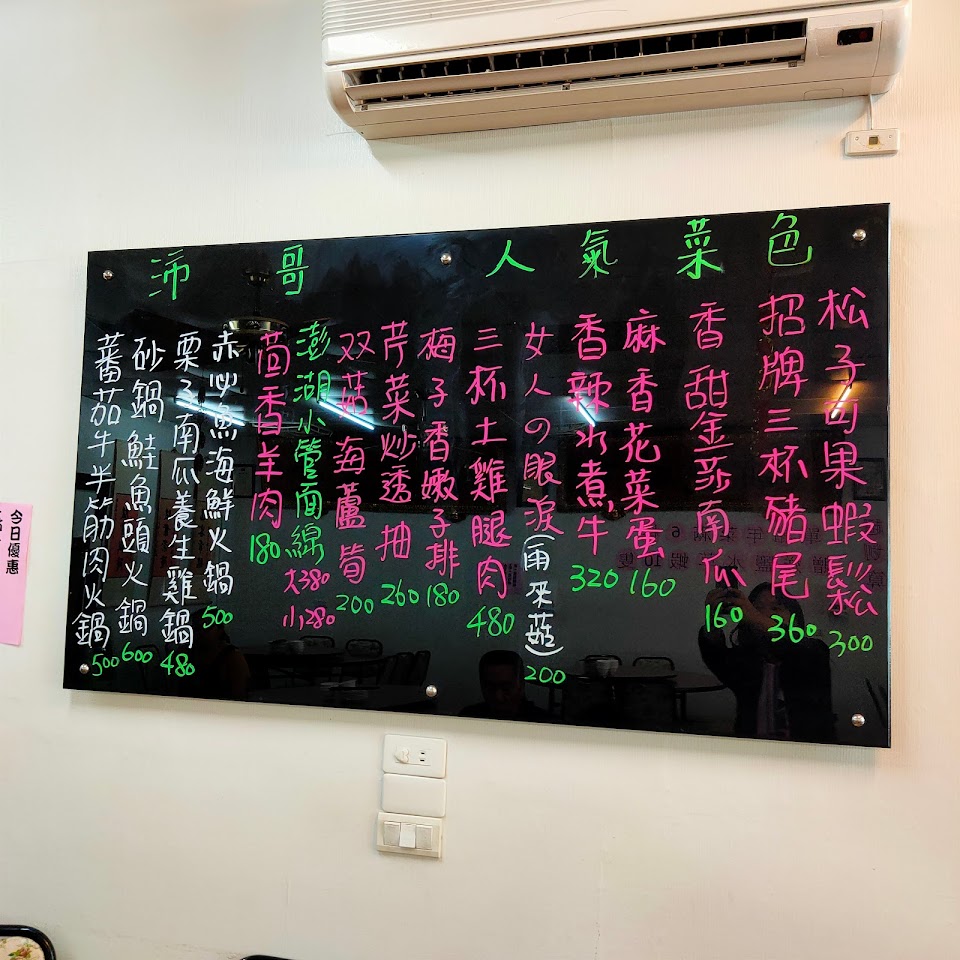 沛哥 人氣菜色
松子百果蝦鬆 300
招牌三杯豬尾 360
香甜金莎南瓜 160
麻香花菜蛋 160
香辣水煮牛 320
女人の眼淚(雨來菇) 200
三杯土雞腿肉 480
梅子香嫩子排 180
芹菜炒透抽 260
双菇海蘆筍 200
澎湖小管面線 大380 小280
茴香羊肉 180
赤鮅魚海鮮火鍋 500
栗子南瓜養生雞鍋 480
砂鍋鮭魚頭火鍋 600
蕃茄牛半筋肉火鍋 500
今日優惠